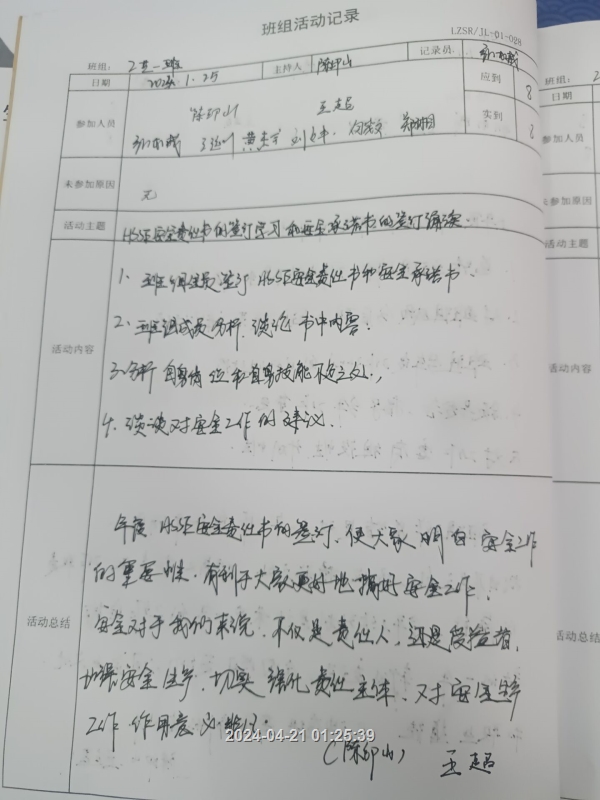 班组活动记录
LZSR/JL-01-028
班组: 2班一班
日期 2024.1.25 主持人 陈印山 记录员
应到 8
参加人员 陈印山 王超
刘文申 何家文
实到 8
未参加原因 无
活动主题 HSE安全责任书的签订学习和安全承诺书的签订诵读
活动内容
1、班组全员签订HSE安全责任书和安全承诺书
2、班组成员分析、谈论书中内容.
3、分析自身岗位和自身技能不足之处.
4、谈谈对安全工作的建议.
活动总结
年度HSE安全责任书的签订、使大家明白安全工作
的重要性、有利于大家更好地搞好安全工作、
安全对于我们来说、不仅是责任人、还是受益者、
加强安全生产、切实强化责任主体、对安全生产
工作作用意义
(陈印山) 王超
2024-04-21 01:25:39
班组:
日期
参加人员
未参加原因
活动主题
活动内容
活动总结